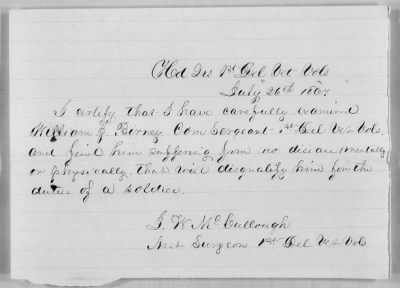 Hd Qrs 1st Del Vet Vols
July 26th 1864
I certify that I have carefully examined
William J. Birney Com Sergeant 1st Del Vet Vols
and find him suffering from no disease mentally
or physically that will disqualify him for the
duties of a soldier.
J. W. McCullough
Asst Surgeon 1st Del Vet Vols